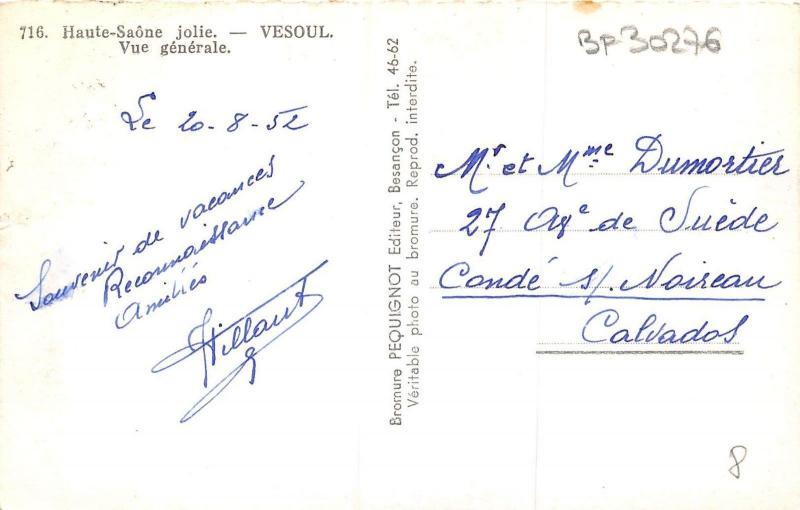 716. Haute-Saône jolie. — VESOUL.
Vue générale.
Le 20-8-52
Souvenir de vacances
Reconnaissance
Amitiés
Bromure PEQUIGNOT Editeur, Besançon - Tél. 46-62
Véritable photo au bromure. Reprod. interdite.
BP30276
Mr. et Mme Dumortier
27 de Suède
Condé s/ Noireau
Calvados
8